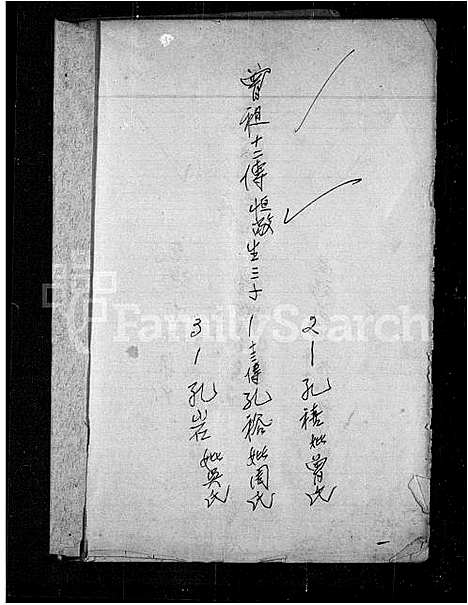 2－孔禧妣曾氏
曾祖十二傳恒敬生三子
1－十三傳孔裕妣周氏
3－孔岩妣吳氏
FamilySearch